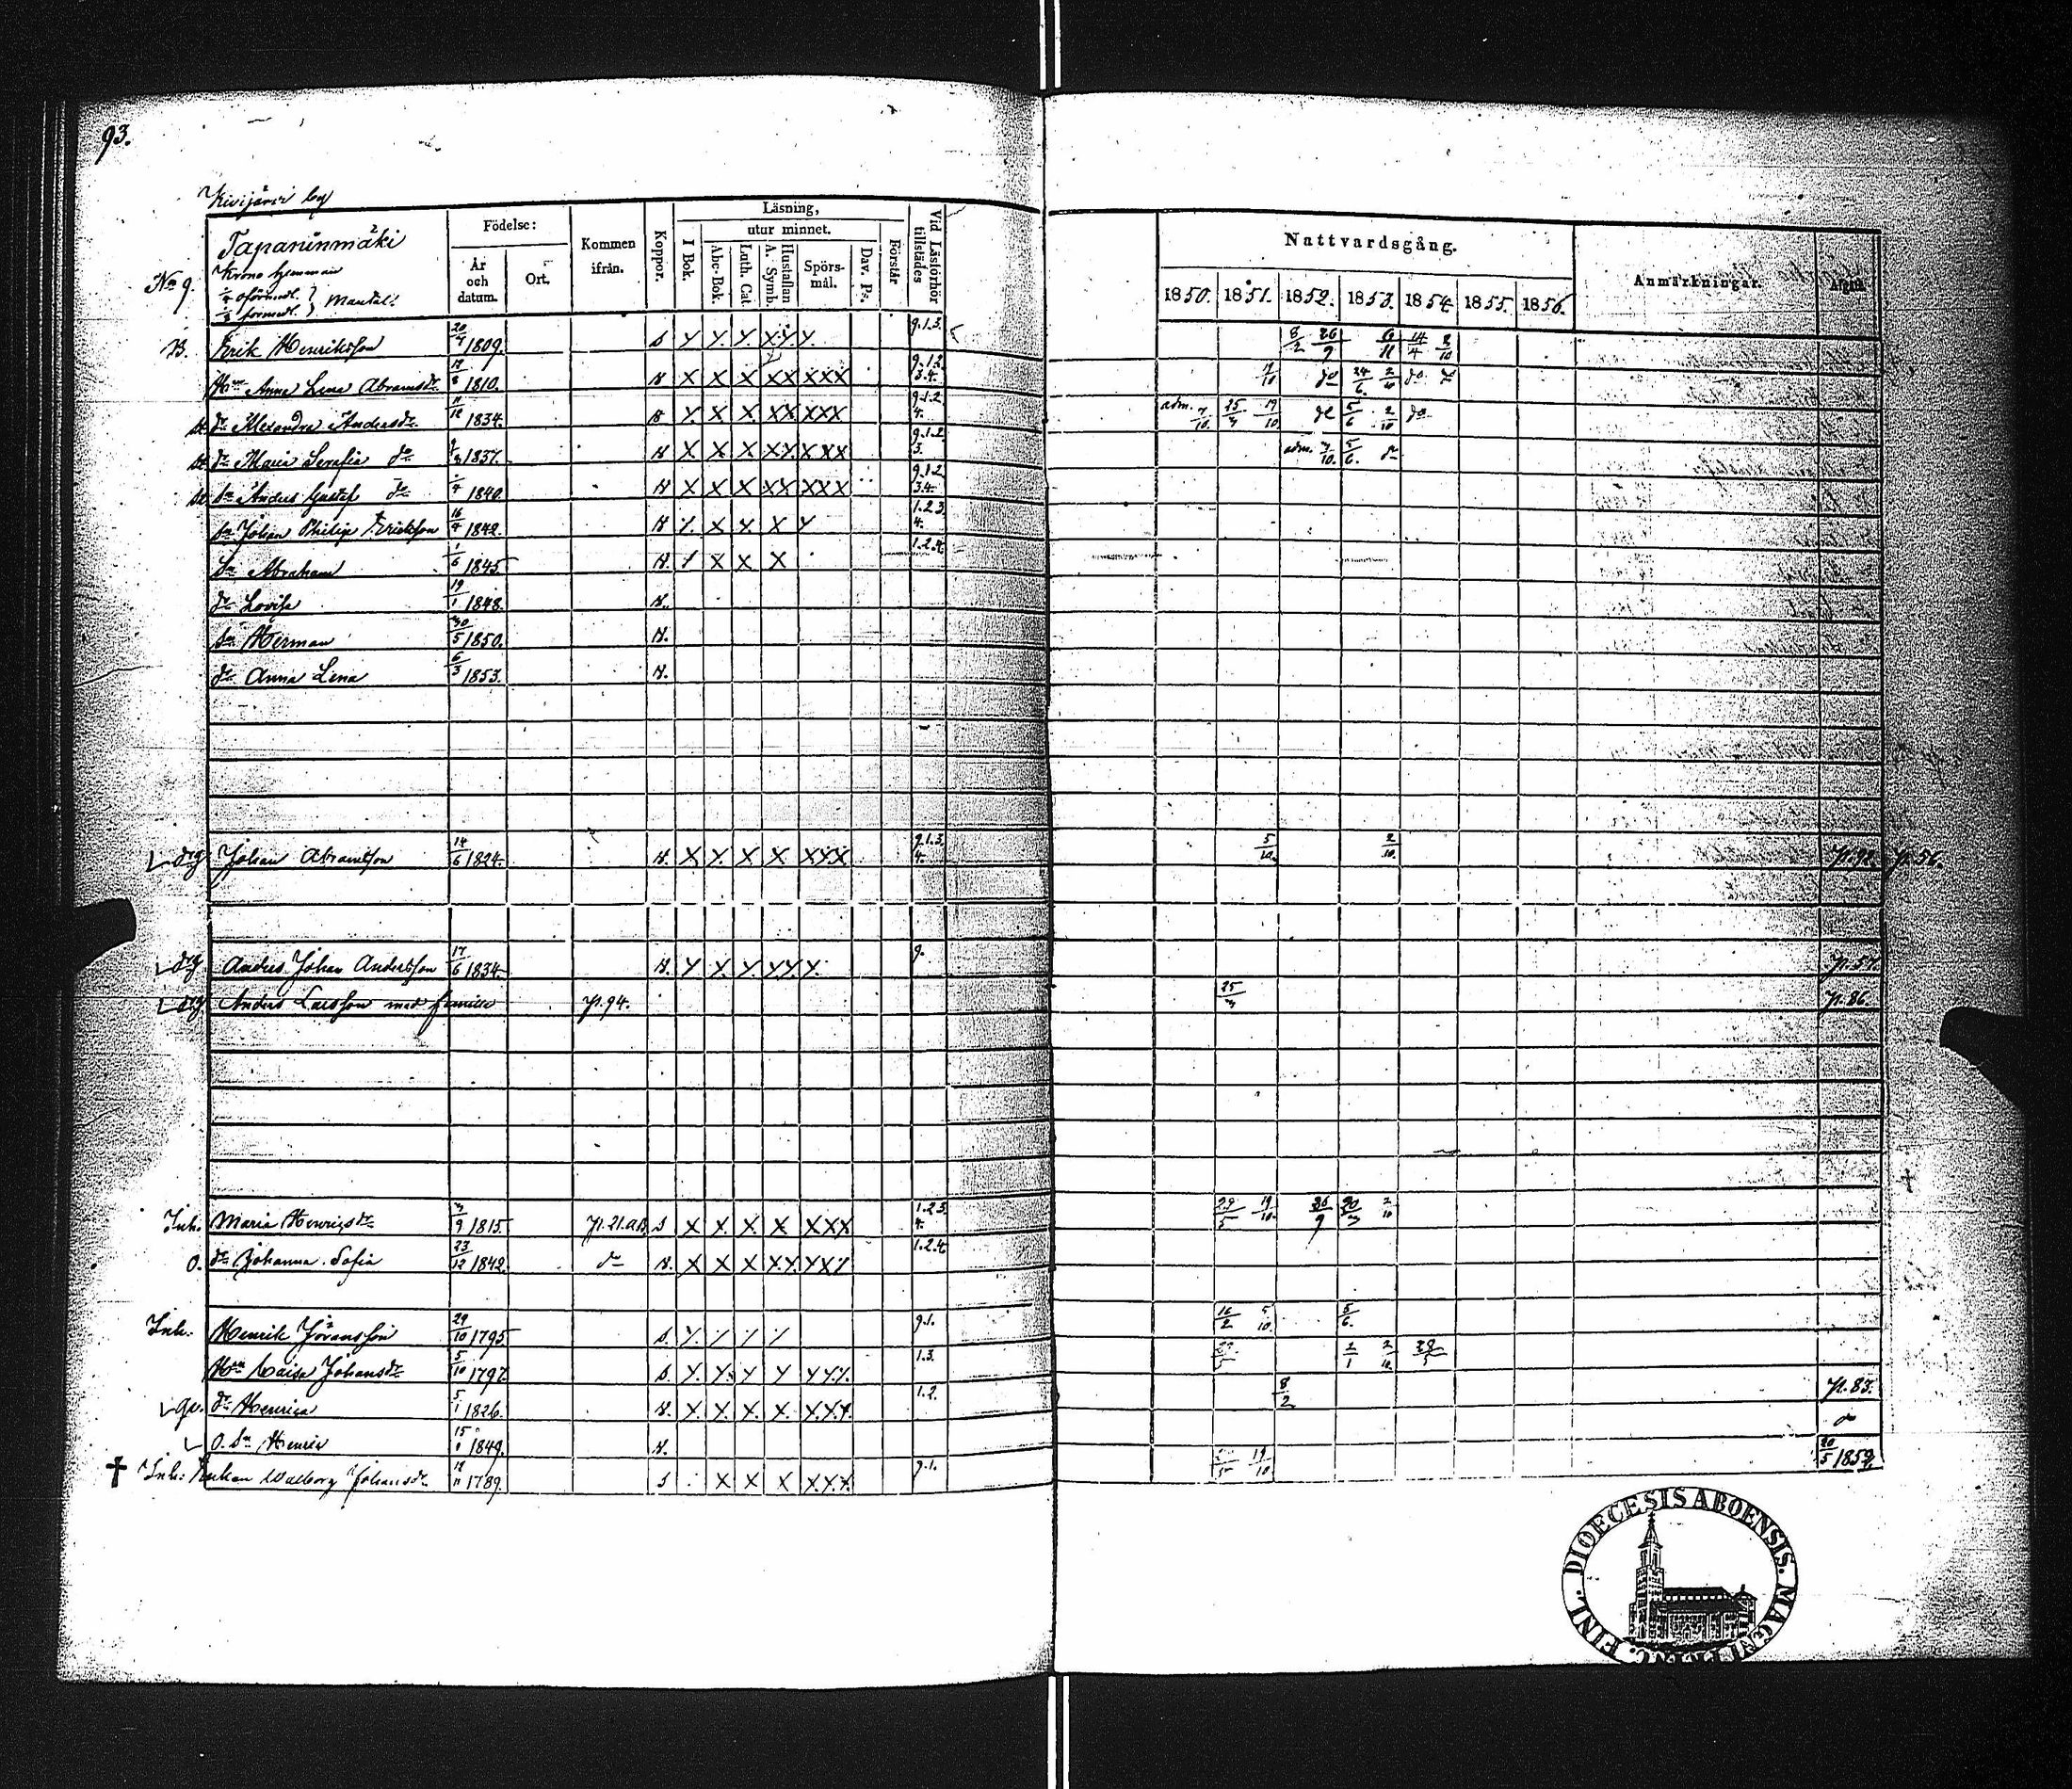 93.
Kivijärvi by
Taparinmäki
Krono hemman
No 9.
1/4 oförmedl.
1/3 förmedl. } Mantal
Födelse:
År och datum.
Ort.
Kommen ifrån.
Koppor.
Läsning,
I Bok.
utur minnet.
Abc-Bok.
Luth. Cat.
A. Symb.
Hustaflan
Spörsmål.
Dav. Ps.
Förstår
Vid Läsförhör tillstädes
Nattvardsgång.
1850. 1851. 1852. 1853. 1854. 1855. 1856.
Anmärkningar.
B. Erik Henriksson 1809. S Y Y Y X Y Y 9.1.3. 8/2 26/9 6/11 14/4 8/10
Hu Anna Lena Abramsdr 1810. H X X X XX XXX 9.1.2. 3.4. do 24/6 2/10 do do
dr Alexandra Andersdr 11/12 1834. H X X X XX XXX 9.1.2. 4. adm. 7/10 25/3 19/10 do 5/6 2/10 do
dr Maria Serafia do 1837. H X X X XX XXX 9.1.2. 3. adm. 3/10 5/6 do
sn Anders Gustaf do 1840. H X X X XX XXX 9.1.2. 3.4.
sn Johan Philip Eriksson 16/4 1842. H X X X X Y 1.2.3. 4.
sn Abraham 1/6 1845. H X X X 1.2.4.
dr Lovisa 19/1 1848. H.
sn Herman 30/5 1850. H.
dr Anna Lena 6/3 1853. H.
drg Johan Abramsson 14/6 1824. H X X X X XXX 9.1.3. 4. 5/10 2/10 p.92. p.56.
drg Anders Johan Andersson 17/6 1834 H. Y X Y XY Y. 9. p.57.
drg Anders Larsson med familie p.94. 25/3 p.86.
Inh. Maria Henricsdr 3/9 1815. p.21.a.B. S X X X X XXX 1.2.3. 4. 29/5 19/10 26/9 20/3 2/10
O. dr Johanna Sofia 23/12 1842. do H. X X X XX YXY 1.2.4.
Inh. Henrik Göransson 29/10 1795. S. 9.1. 16/2 5/10 5/6
Hu Caisa Johansdr 5/10 1797. S. Y Y Y Y YYY. 1.3. 2/1 2/10
dr Henrica 5/1 1826. H. X X X X XXX. 1.2. 8/2 p.83.
O. sn Henric 1849. H. do
† Inh. Enkan Walborg Johansdr 12/11 1789. S X X X XXX. 9.1. 19/10 20/5 1852.
DIOECESIS ABOENSIS. MAGNI DUC. FINL.